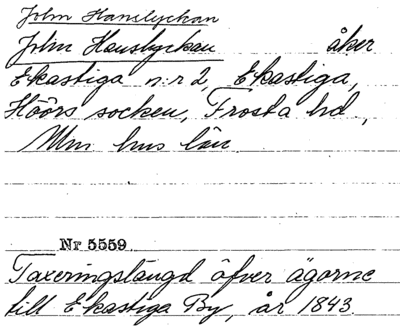 John Hanslyckan
John Hanslyckan åker
Ekastiga n:r 2, Ekastiga,
Höörs socken, Frosta hd,
Mm hus län.
Nr 5559
Taxeringslängd öfver ägorne
till Ekastiga By, år 1843.